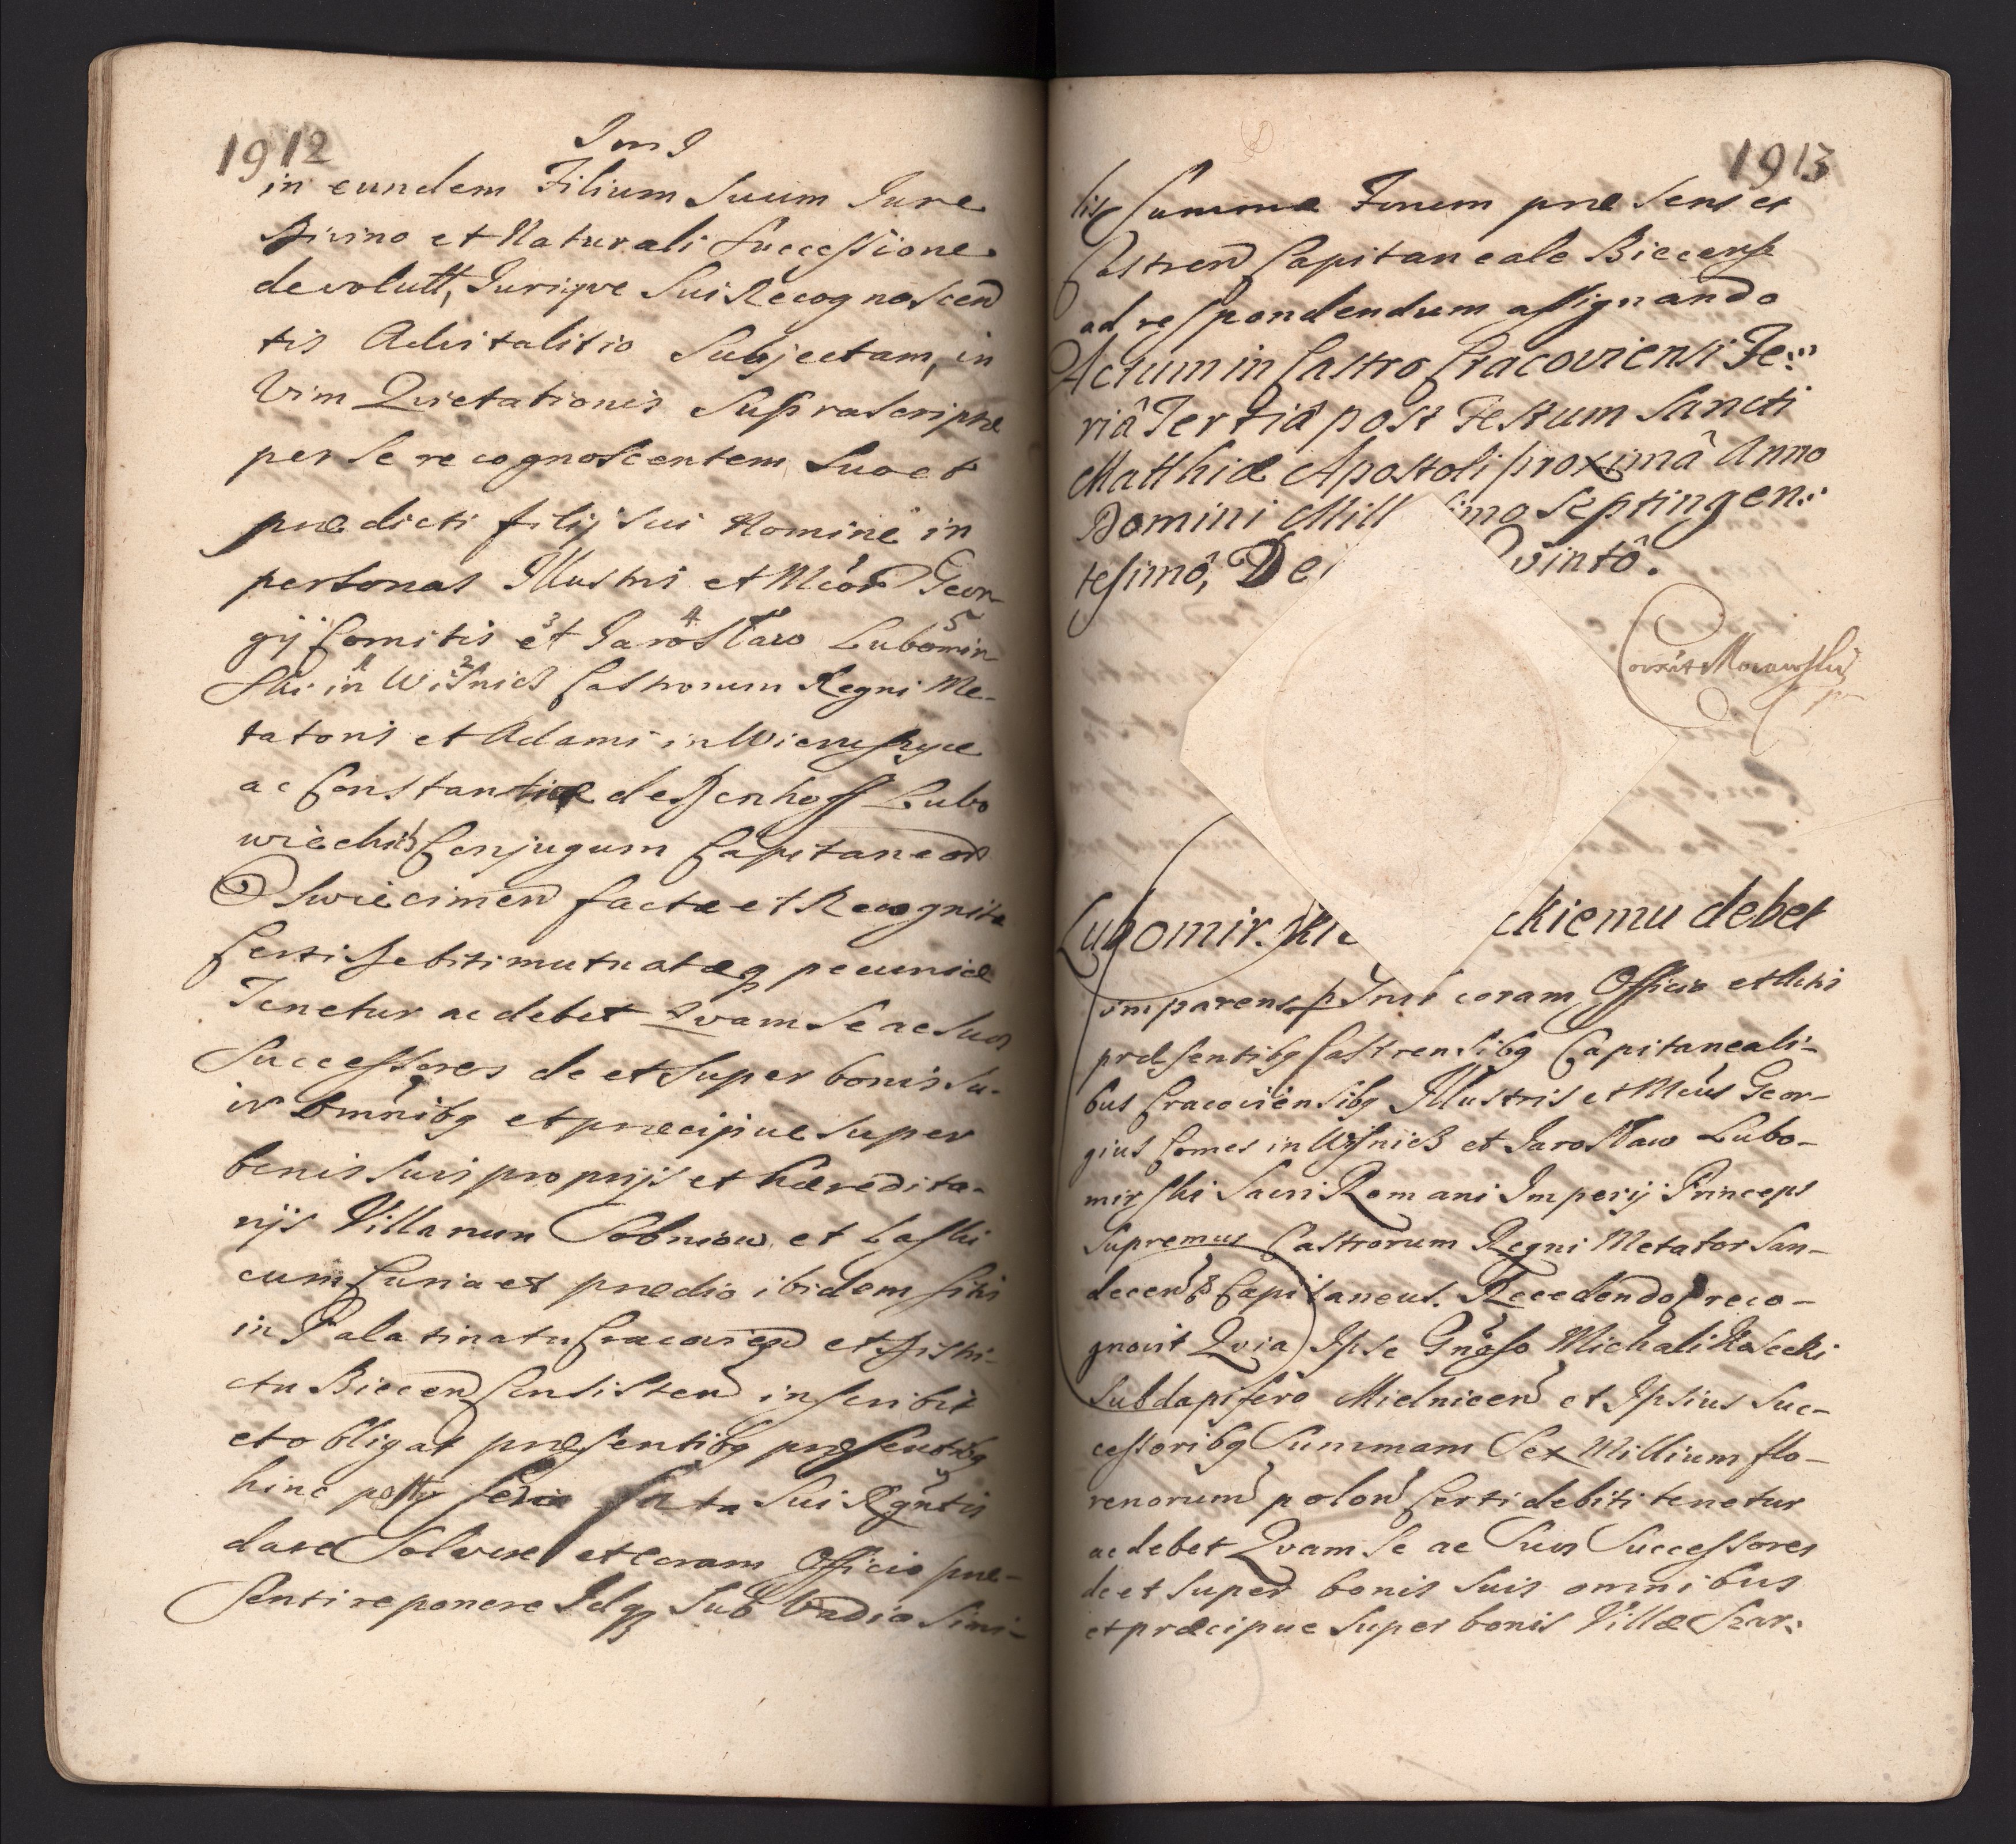 1912
in eundem Filium Suum Jure
Divino et Naturali Successione
devolutt, Jurique Sui Recognoscen
tis Advitalitio Subjectam, in
Vim Quietationis Suprascriptæ
per se recognoscentem Suo et
prædicti filij Sui Nomine in
personas Illustris et Mcor Geor-
gij Comitis et Jarosław Lubomir
ski in Wisnicz Castrorum Regni Me-
tatoris et Adami in
ac Constantiæ Denhoff Lubo
wieckich Conjugum Capitaneor
Oswiecimen factæ et Recognitæ
Certi Debiti mutuatæq pecuniæ
Tenetur ac debet Qvam Se ac Suos
Successores de et Super bonis Su-
is omnibq et præcipue Super
bonis Suis proprijs et hæredita-
rijs Villarum Sobniow et Laski
cum Curia et prædio ibidem sitis
in Palatinatu Cracovien et Distri-
ctu Biecen Consisten inscribit
et obligat præsentibq præsentibq
hinc Sui Rgntis
dare Solvere et Coram Officio præ-
senti reponere Idq Sub Vadio Simi-
1913
lis Summæ Forum præsens et
Castren Capitaneale Biecense
ad respondendum assignando
Actum in Castro Cracoviensi Fe:
riâ Tertiâ post Festum Sancti
Matthiæ Apostoli proximâ Anno
Domini Mill simo Septingen:
tesimô, De Qvintô.
Lubomir.skie ckiemu debet
Comparens psnlr coram Officio et Actis
præsentibq Castrensibq Capitaneali-
bus Cracoviensibq Illustris et Mcus Geor-
gius Comes in Wisnicz et Jarosław Lubo-
mirski Sacri Romani Imperij Princeps
Supremus Castrorum Regni Metator San-
decen Capitaneus. Recedendo reco-
gnovit Qvia Ipse Gnoso Michali Kosecki
Subdapifero Mielnicen et Ipsius Suc-
cessoribq Summam Sex Millium flo-
renorum polon Certi debiti tenetur
ac debet Qvam Se ac Suos Successores
de et Super bonis Suis omnibus
et præcipue Super bonis Villæ Szar: